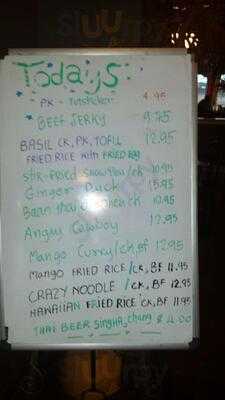 Todays:
PK - Potsticker 4.95
BEEF JERKY 9.95
BASIL CK, PK, TOFU 12.95
FRIED RICE with FRIED EGG
Stir-Fried Snow Pea/ck 10.95
Ginger Duck 15.95
Baan Thai Chicken 10.95
Angry Cowboy 12.95
Mango Curry/ck, BF 12.95
Mango FRIED RICE /CK, BF 11.95
CRAZY NOODLE /CK, BF 12.95
HAWAIIAN FRIED RICE CK, BF 11.95
THAI BEER SINGHA, chang $4.00